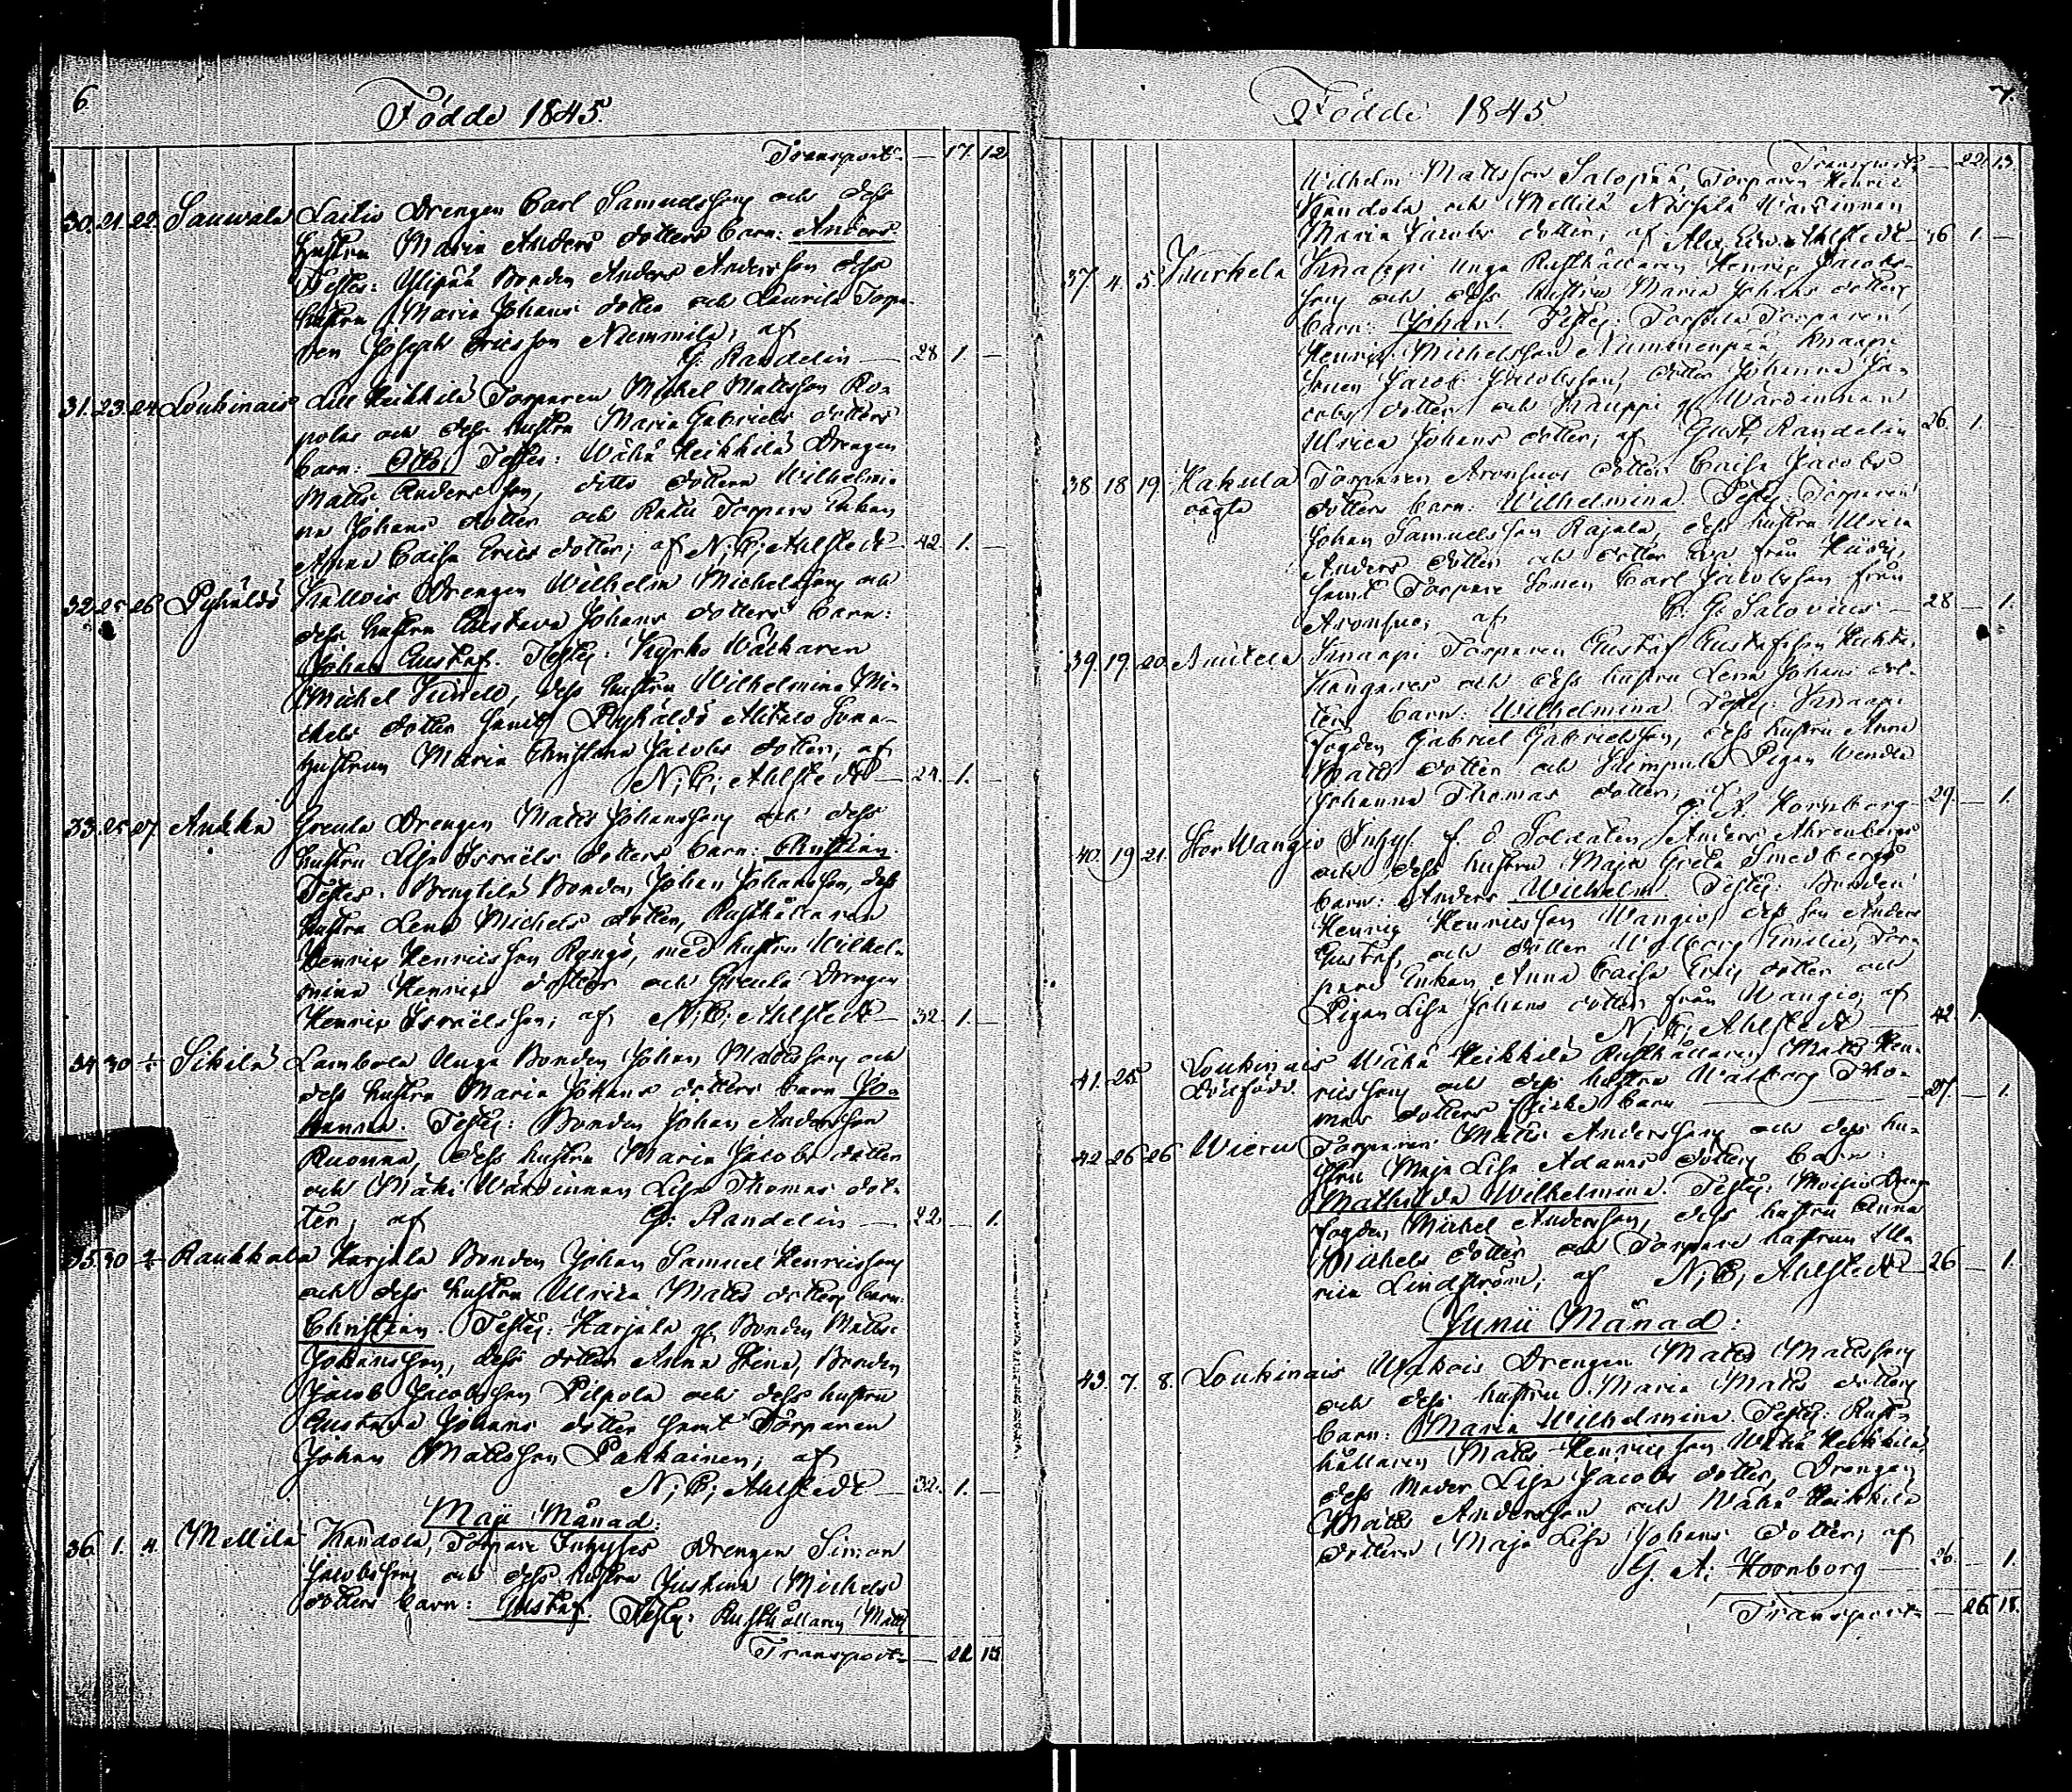 6.
Födde 1845.
Transport — 17. 12
30. 21. 22. Sauwala Laitis Drengen Carl Samuelsson och dess
hustru Maria Anders dotters barn: Anders
Testes: Ylipää Bonden Anders Andersson dess
hustru Maria Johans dotter och Laurila Torpa-
ren Joseph Ericsson Niemmilä; af
G. Randelin — 28 1. —
31. 23. 24. Loukinais Lill Heikkilä Torparen Michel Mattsson Ro-
polas och dess hustru Maria Gabriels dotters
barn: Otto. Testes: Wähä Heikkilä Drengen
Matts Andersson, ditto dottern Wilhelmi-
na Johans dotter och Torpare Enkan
Anna Caisa Erics dotter; af N; E; Ahlstedt — 42. 1. —
32. 25. 26 Pyhäldö Kallois Drengen Wilhelm Michelsson och
dess hustru Gustava Johans dotters barn:
Johan Gustaf. Testes: Kyrko Wäktaren
Michel, dess hustru Wilhelmina Mi-
chels dotter samt Pyhäldö Alitalo Sona-
hustrun Maria Christina Jacobs dotter; af
N; E; Ahlstedt — 24. 1. —
33. 25. 27. Anckka Grcula Drengen Matts Johansson och dess
hustru Lisa Israels dotters barn: Christian.
Testes: Bengtilä Bonden Johan Johansson, dess
hustru Lena Michels dotter, Rusthållaren
Henric Henricsson Rangö, med hustru Wilhel-
mina Henrics dotter och Grcula Drengen
Henric Israelsson; af N; E; Ahlstedt — 32. 1. —
34. 30 Sikilä Lambola Unga Bonden Johan Mattsson och
dess hustru Maria Johans dotters barn Jo-
hanna. Testes: Bonden Johan Andersson
Ruonna, dess hustru Maria Jacobs dotter
och Mäki Wärdinnan Lisa Thomas dot-
ter; af G: Randelin — 22 — 1.
35. 30 Raukkala Karjala Bonden Johan Samuel Henricsson
och dess hustru Ulrica Matts dotters barn:
Christian. Testes: Karjala gl Bonden Matts
Johansson, dess dotter Anna Stina, Bonden
Jacob Jacobsson Pilpola och dess hustru
Gustava Johans dotter samt Torparen
Johan Mattsson Pakkainen; af
N; E; Ahlstedt — 32. 1. —
Maji Månad:
36. 1. 4. Mellilä Kandola, Torpare Inhyses Drengen Simon
Jacobsson och dess hustru Justina Michels
dotters barn: Gustaf. Testes: Rusthållaren Matts
Transport — 22 13
7.
Födde 1845
Transport — 22. 13.
Wilhelm Mattsson Salopää, Torparen Henric
Kandola och Mellilä Wärdinnan
Maria Jacobs dotter; af Alex: Edw: Ahlstedt — 36 1. —
37 4. 5. Kurkela Knaappi Unga Rusthållaren Henric Jacobs-
son och dess hustru Maria Johans dotters
barn: Johan. Testes: Torparen
Henric Michelsson Nummenpää, Knaapi
Sonen Jacob Jacobsson, dotter Johanna Ja-
cobs dotter och Kauppi gl Wärdinnan
Ulrica Johans dotter; af Gust. Randelin 26. 1.
38 18 19. Hakula Torparen Aronsuos dotter Caisa Jacobs
oägta dotters barn: Wilhelmina. Testes: Torparen
Johan Samuelsson Rajala, dess hustru Ulrica
Anders dotter och dotter Eva från
samt Torpare Sonen Carl Jacobsson från
Aronsuo; af G. Salovius — 28 — 1.
39. 19. 20. Anitela Knaapi Torparen Gustaf Gustafsson Huhta-
Kangares och dess hustru Lena Johans dot-
ters barn: Wilhelmina Testes: Knaapi
Fogden Gabriel Gabrielsson, dess hustru Anna
Matts dotter och Simpula Pigan Wendla
Johanna Thomas dotter; af G. A. Hornborg — 29. — 1.
40. 19 21. Stor Wangio Inhys. f. d. Soldaten Anders Ahrenbergs
och dess hustru Maja Greta Smedbergs
barn: Anders Wilhelm. Testes: Bonden
Henric Henricsson Wangio, dess son Anders
Gustaf, och dotter Walborg Emilia, Tor-
pare Enkan Anna Caisa Erics dotter och
Pigan Lisa Johans dotter från Wangio; af
N; E; Ahlstedt — 42.
41. 25. Loukinais Wähä Heikkilä Rusthållaren Matts Hen-
dödfödd. ricsson och dess hustru Walborg Tho-
mas dotters flicke barn — 27. — 1.
42. 26 26 Wieru Torparen Matts Andersson och dess hu-
stru Maja Lisa Adams dotters barn:
Mathilda Wilhelmina. Testes: Moisio Drenge
Fogden Michel Andersson, dess hustru Anna
Michels dotter och Torpare hustrun Ma-
ria Lindström; af N; E; Ahlstedt 26 — 1.
Junii Månad:
43. 7. 8. Loukinais Uskois Drengen Matts Mattsson
och dess hustru Maria Matts dotters
barn: Maria Wilhelmina. Testes: Rust-
hållaren Matts Henricsson Wähä Heikkilä,
dess Moder Lisa Jacobs dotter, Drengen
Matts Andersson och Wähä Heikkilä
dottern Maja Lisa Johans dotter; af
G. A. Hornborg — 26. — 1.
Transport — 26. 18.